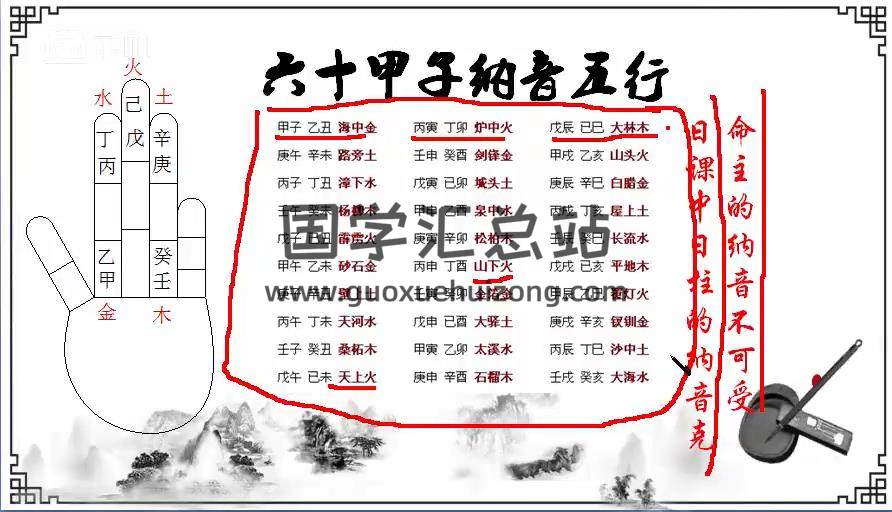 六十甲子纳音五行
火
水 土
己
戊
丁 辛
丙 庚
乙 癸
甲 壬
金 木
甲子 乙丑 海中金 丙寅 丁卯 炉中火 戊辰 已巳 大林木
庚午 辛未 路旁土 壬申 癸酉 剑锋金 甲戌 乙亥 山头火
丙子 丁丑 漳下水 戊寅 已卯 城头土 庚辰 辛巳 白腊金
壬午 癸未 杨柳木 甲申 乙酉 泉中水 丙戌 丁亥 屋上土
戊子 已丑 霹雳火 庚寅 辛卯 松柏木 壬辰 癸巳 长流水
甲午 乙未 砂石金 丙申 丁酉 山下火 戊戌 已亥 平地木
庚子 辛丑 壁上土 壬寅 癸卯 金箔金 甲辰 乙巳 覆灯火
丙午 丁未 天河水 戊申 已酉 大驿土 庚戌 辛亥 钗钏金
壬子 癸丑 桑柘木 甲寅 乙卯 太溪水 丙辰 丁巳 沙中土
戊午 已未 天上火 庚申 辛酉 石榴木 壬戌 癸亥 大海水
命主的纳音不可受
日课中日柱的纳音克
国学汇总站
www.guoxuehuizong.com